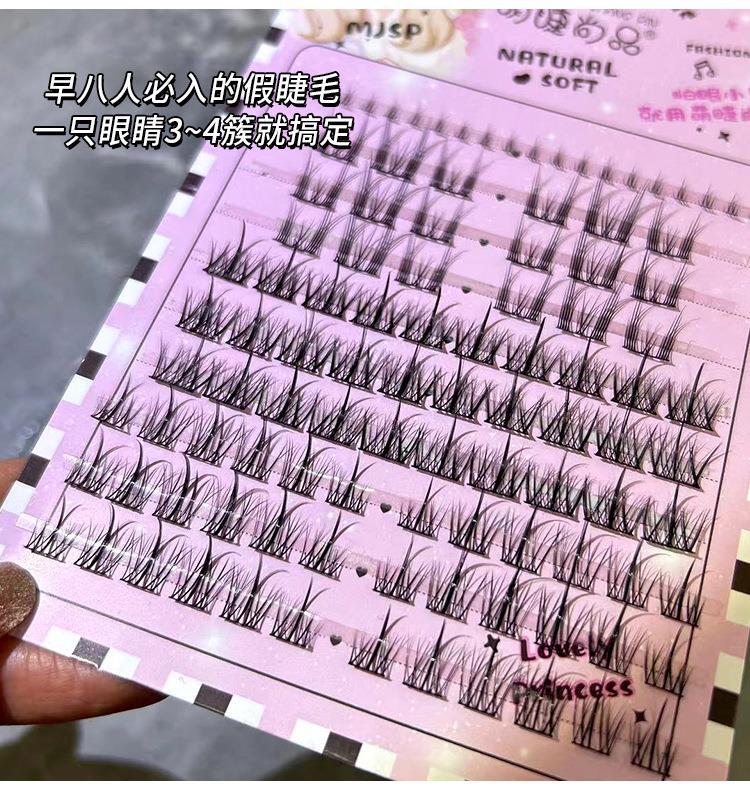 MJSP
萌睫尚品®
NATURAL
SOFT
FASHION
早八人必入的假睫毛
一只眼睛3~4簇就搞定
Lovely
Princess